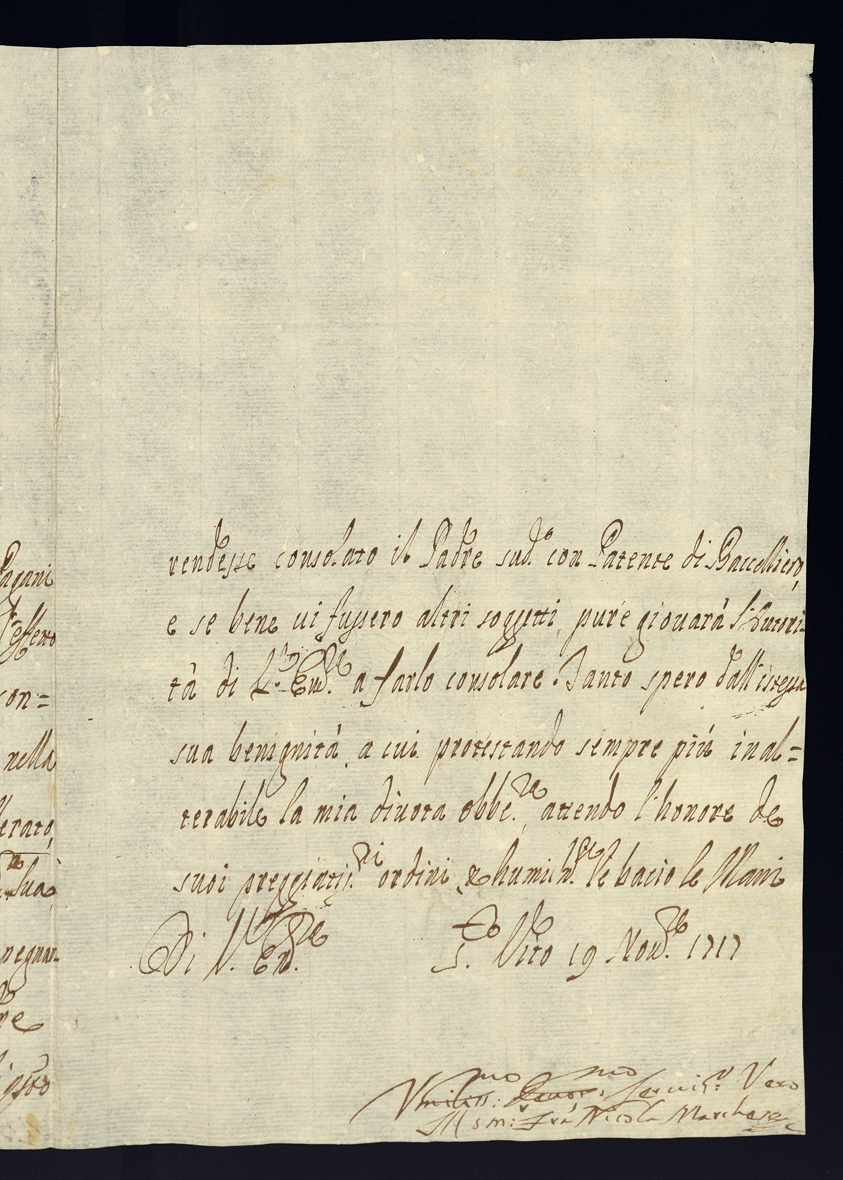 Pagani
l'effetto
con=
nella
Sua
vendesse consolato il Padre sud.º con Patente di Baccelliero,
e se bene ui fussero altri soggetti, pure giouarà l'Autori-
tà di V.ra Em.za a farlo consolare. Tanto spero dall'istessa
sua benignità, a cui protestando sempre più inal=
terabile la mia diuota obbe.za attendo l'honore de
suoi preggiatis.mi ordini, & humilm.te le bacio le Mani
Di V.ra Em.za S.to Vito 19 Nou.bre 1717
Vmiliss:mo Seruit.r Vero
Fra Nicola Marchese